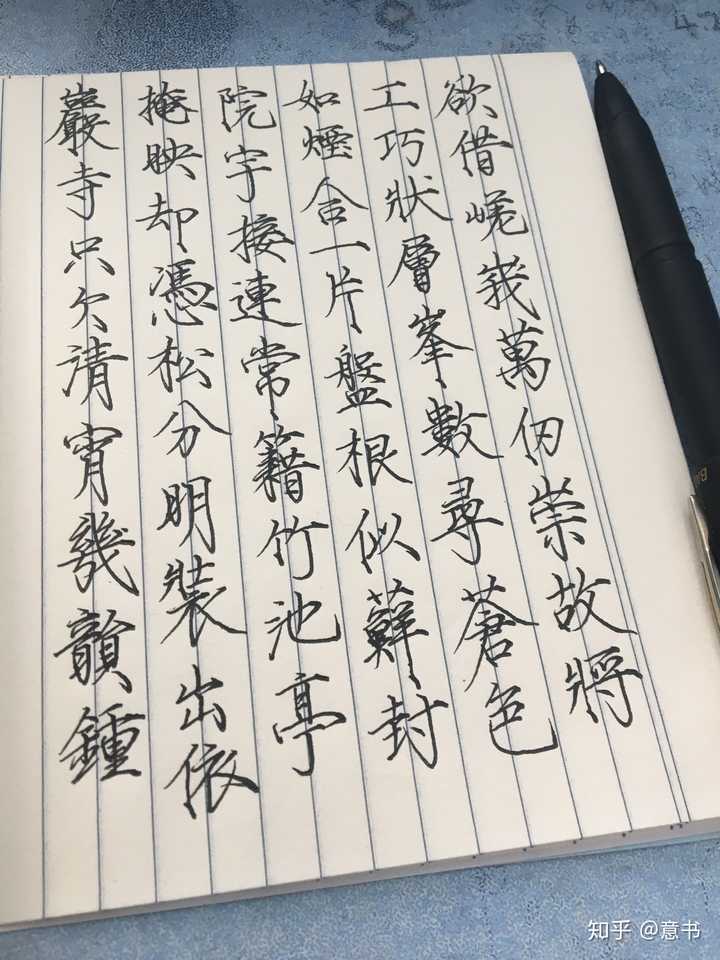 欲借嵯峩萬仞崇故將
工巧狀層峯數尋蒼色
如煙合一片盤根似蘚封
院宇接連常籍竹池亭
掩映却憑松分明裝出依
巖寺只欠清宵幾韻鍾
知乎 @意书